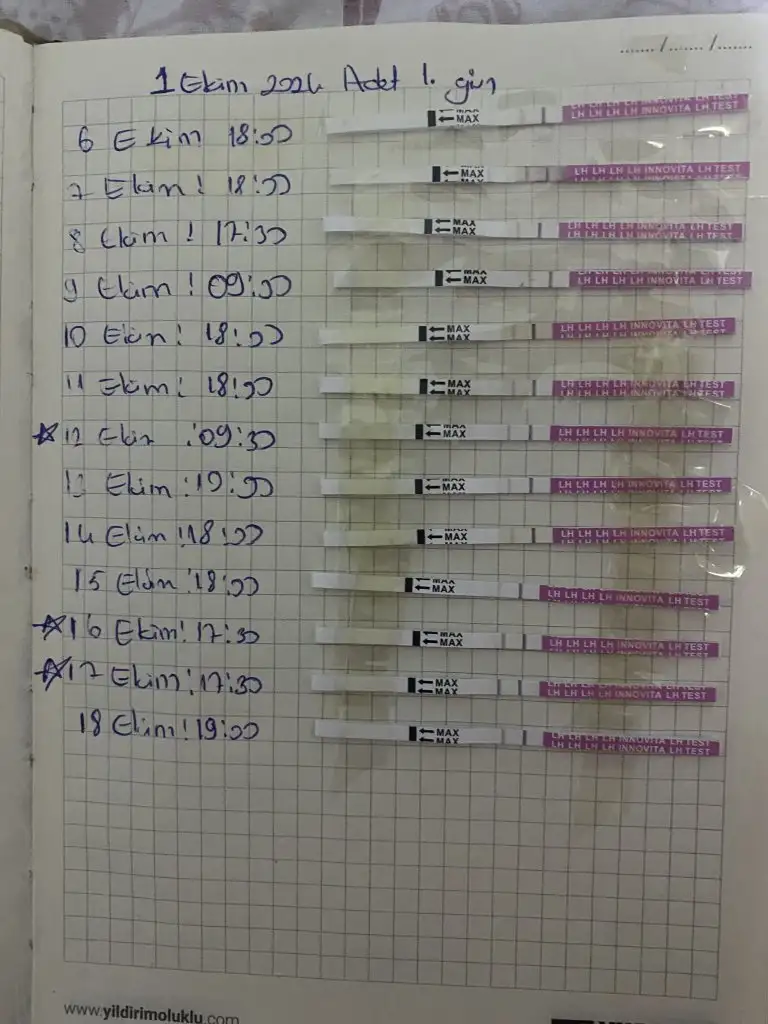 ....... / ....... / .......
1 Ekim 2024 Adet 1. gün
6 Ekim 18:00
← MAX
LH LH LH LH INNOVITA LH TEST
7 Ekim : 18:00
← MAX
LH LH LH LH INNOVITA LH TEST
8 Ekim : 17:30
← MAX
← MAX
LH LH LH LH INNOVITA LH TEST
LH LH LH LH INNOVITA LH TEST
9 Ekim : 09:00
← MAX
LH LH LH LH INNOVITA LH TEST
10 Ekim : 18:00
← MAX
← MAX
LH LH LH LH INNOVITA LH TEST
11 Ekim : 18:00
← MAX
← MAX
LH LH LH LH INNOVITA LH TEST
LH LH LH LH INNOVITA LH TEST
☆ 12 Ekim : 09:30
← MAX
← MAX
LH LH LH LH INNOVITA LH TEST
13 Ekim : 19:00
← MAX
← MAX
LH LH LH LH INNOVITA LH TEST
14 Ekim : 18:00
← MAX
LH LH LH LH INNOVITA LH TEST
15 Ekim : 18:00
← MAX
← MAX
LH LH LH LH INNOVITA LH TEST
☆ 16 Ekim : 17:30
← MAX
← MAX
LH LH LH LH INNOVITA LH TEST
☆ 17 Ekim : 17:30
← MAX
← MAX
LH LH LH LH INNOVITA LH TEST
18 Ekim : 19:00
← MAX
← MAX
LH LH LH LH INNOVITA LH TEST
LH LH LH LH INNOVITA LH TEST
www.yildirimoluklu.com